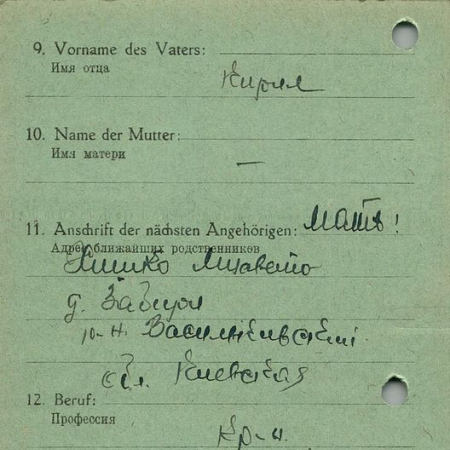 9. Vorname des Vaters:
Имя отца
Кирил
10. Name der Mutter:
Имя матери
—
11. Anschrift der nächsten Angehörigen: Мать!
Адрес ближайших родственников
д.
р-н. Васильковский
обл. Киевская
12. Beruf:
Профессия
Кр-н.